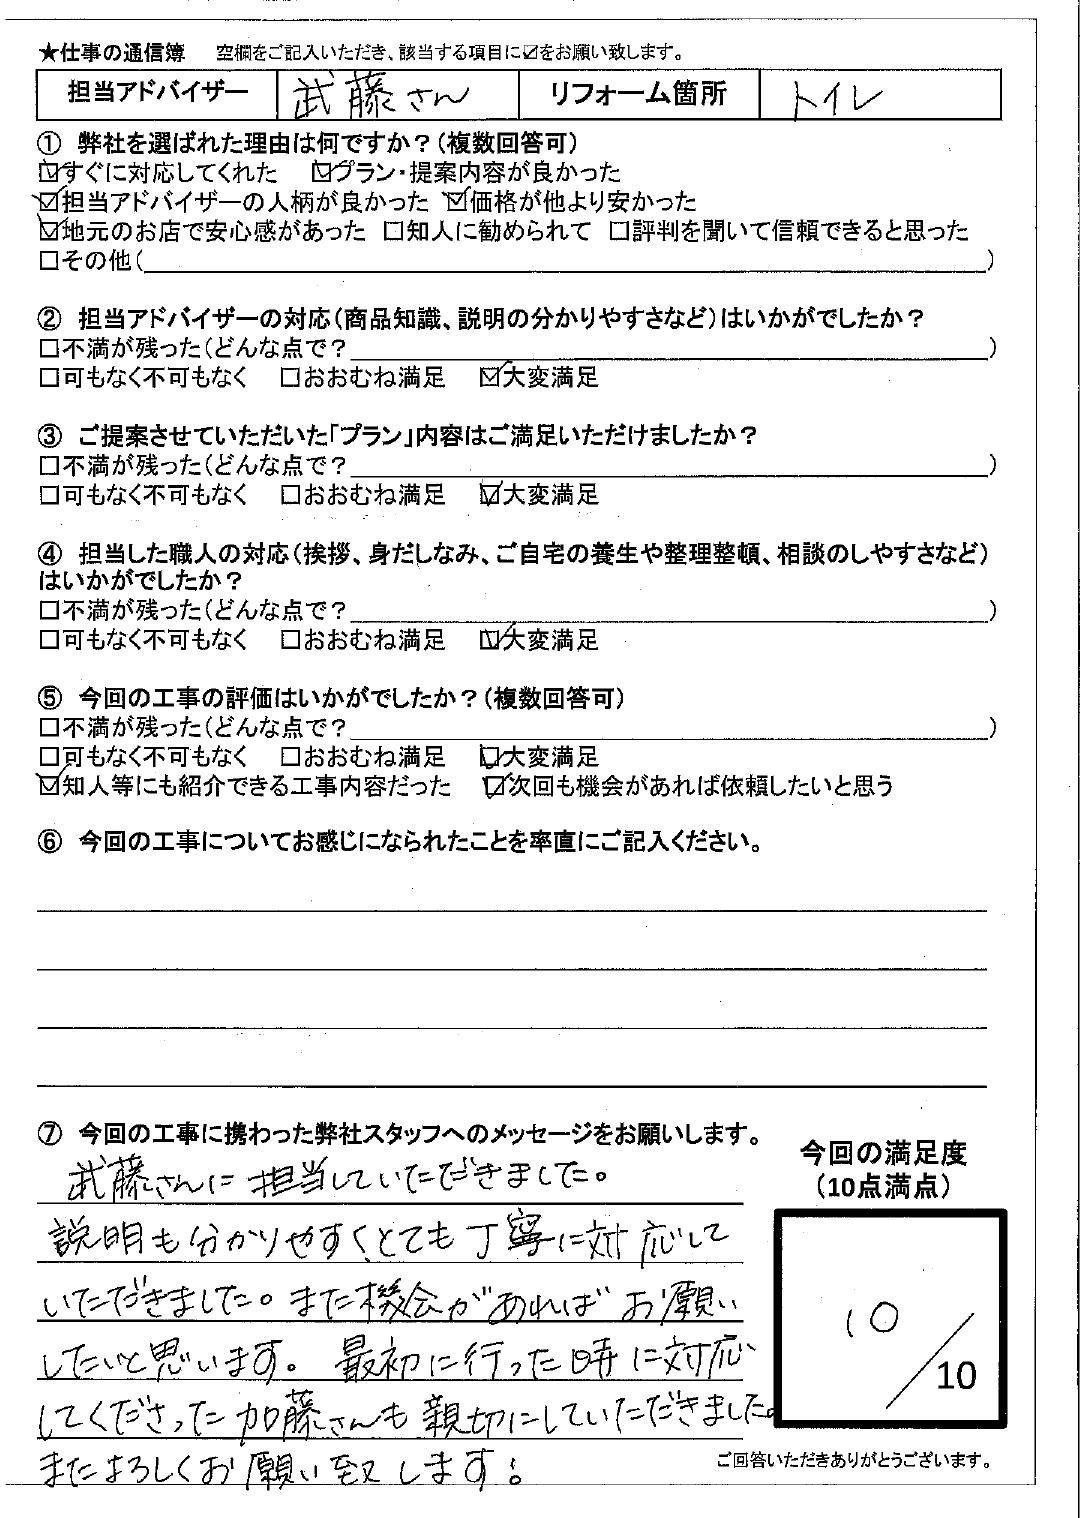 ★仕事の通信簿 空欄をご記入いただき、該当する項目に☑をお願い致します。
担当アドバイザー 武藤さん リフォーム箇所 トイレ
① 弊社を選ばれた理由は何ですか？(複数回答可)
☑すぐに対応してくれた ☑プラン・提案内容が良かった
☑担当アドバイザーの人柄が良かった ☑価格が他より安かった
☑地元のお店で安心感があった □知人に勧められて □評判を聞いて信頼できると思った
□その他( )
② 担当アドバイザーの対応(商品知識、説明の分かりやすさなど)はいかがでしたか？
□不満が残った(どんな点で? )
□可もなく不可もなく □おおむね満足 ☑大変満足
③ ご提案させていただいた「プラン」内容はご満足いただけましたか？
□不満が残った(どんな点で? )
□可もなく不可もなく □おおむね満足 ☑大変満足
④ 担当した職人の対応(挨拶、身だしなみ、ご自宅の養生や整理整頓、相談のしやすさなど)
はいかがでしたか？
□不満が残った(どんな点で? )
□可もなく不可もなく □おおむね満足 ☑大変満足
⑤ 今回の工事の評価はいかがでしたか？(複数回答可)
□不満が残った(どんな点で? )
□可もなく不可もなく □おおむね満足 ☑大変満足
☑知人等にも紹介できる工事内容だった ☑次回も機会があれば依頼したいと思う
⑥ 今回の工事についてお感じになられたことを率直にご記入ください。
⑦ 今回の工事に携わった弊社スタッフへのメッセージをお願いします。
武藤さんに担当していただきました。
説明も分かりやすく、とても丁寧に対応して
いただきました。また機会があればお願い
したいと思います。最初に行った時に対応
してくださった加藤さんも親切にしていただきました。
またよろしくお願い致します!
今回の満足度
(10点満点)
10/10
ご回答いただきありがとうございます。